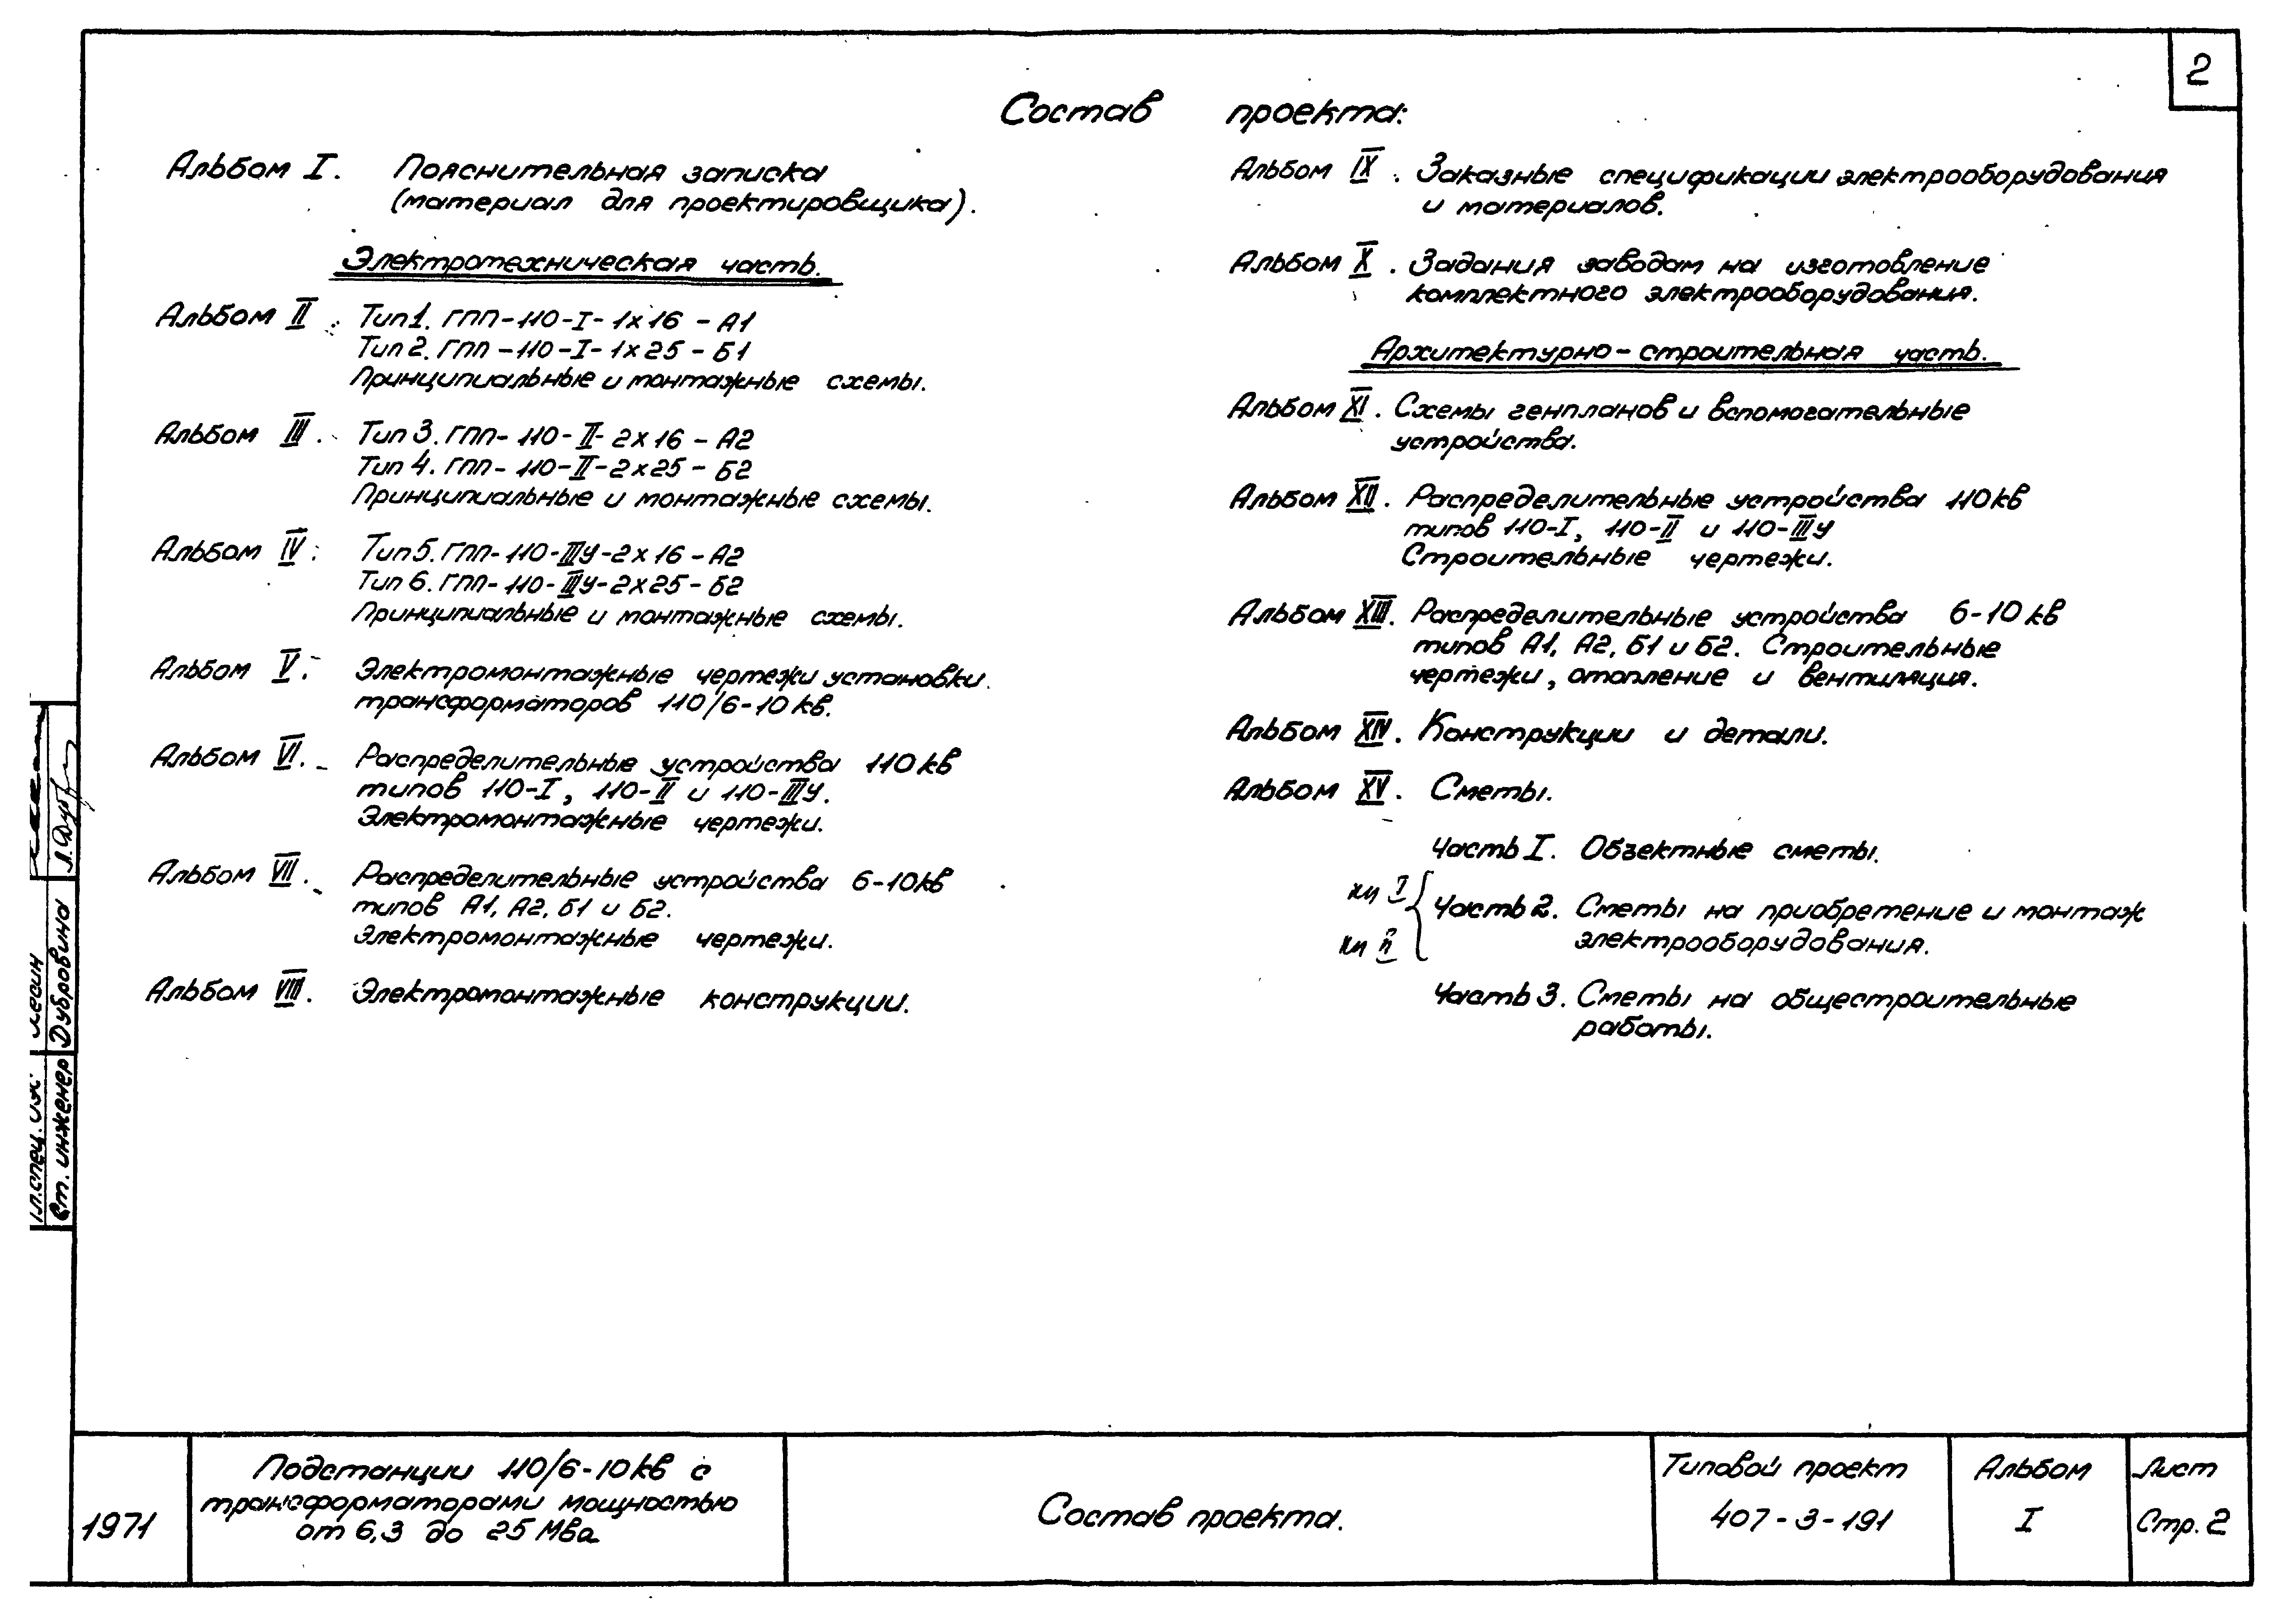 2
Состав проекта:
Альбом I. Пояснительная записка
(материал для проектировщика).
Электротехническая часть.
Альбом II. Тип 1. ГПП-110-I-1х16-А1
Тип 2. ГПП-110-I-1х25-Б1
Принципиальные и монтажные схемы.
Альбом III. Тип 3. ГПП-110-II-2х16-А2
Тип 4. ГПП-110-II-2х25-Б2
Принципиальные и монтажные схемы.
Альбом IV. Тип 5. ГПП-110-IIIУ-2х16-А2
Тип 6. ГПП-110-IIIУ-2х25-Б2
Принципиальные и монтажные схемы.
Альбом V. Электромонтажные чертежи установки
трансформаторов 110/6-10 кв.
Альбом VI. Распределительные устройства 110 кв
типов 110-I, 110-II и 110-IIIУ.
Электромонтажные чертежи.
Альбом VII. Распределительные устройства 6-10 кв
типов А1, А2, Б1 и Б2.
Электромонтажные чертежи.
Альбом VIII. Электромонтажные конструкции.
Альбом IX. Заказные спецификации электрооборудования
и материалов.
Альбом X. Задания заводам на изготовление
комплектного электрооборудования.
Архитектурно-строительная часть.
Альбом XI. Схемы генпланов и вспомогательные
устройства.
Альбом XII. Распределительные устройства 110 кв
типов 110-I, 110-II и 110-IIIУ
Строительные чертежи.
Альбом XIII. Распределительные устройства 6-10 кв
типов А1, А2, Б1 и Б2. Строительные
чертежи, отопление и вентиляция.
Альбом XIV. Конструкции и детали.
Альбом XV. Сметы.
Часть I. Объектные сметы.
кн I
Часть 2. Сметы на приобретение и монтаж
электрооборудования.
кн II
Часть 3. Сметы на общестроительные
работы.
Левин
Ст. инженер Дубровина
1971
Подстанции 110/6-10 кв с
трансформаторами мощностью
от 6,3 до 25 Мва
Состав проекта.
Типовой проект
407-3-191
Альбом
I
Лист
Стр. 2